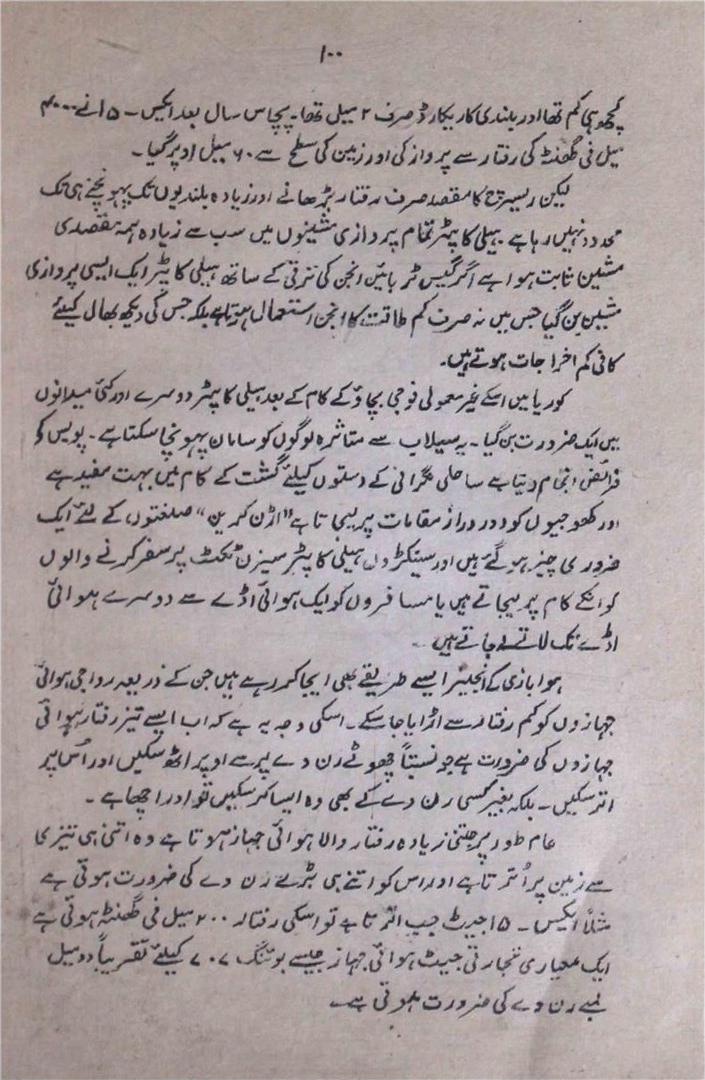 ۱۰۰
کچھ ہی کم تھا اور بلندی کا ریکارڈ صرف ۲ میل تھا۔ پچاس سال بعد ایکس۔ ۱۵ نے ۴۰۰۰
میل فی گھنٹ کی رفتار سے پرواز کی اور زمین کی سطح سے ۶۰ میل اوپر گیا۔
لیکن ریسرچ کا مقصد صرف رفتار بڑھانے اور زیادہ بلندیوں تک پہونچنے ہی تک
محدود نہیں رہا ہے۔ ہیلی کاپٹر تمام پروازی مشینوں میں سب سے زیادہ ہمہ مقصدی
مشین ثابت ہوا ہے اگر گیس ٹربائین انجن کی ترقی کے ساتھ ہیلی کاپٹر ایک ایسی پروازی
مشین بن گیا جس میں نہ صرف کم طاقت کا انجن استعمال ہوتا ہے بلکہ جس کی دیکھ بھال کیلئے
کافی کم اخراجات ہوتے ہیں۔
کوریا میں اسکے غیر معمولی فوجی بچاؤ کے کام کے بعد ہیلی کاپٹر دوسرے اور کئی میدانوں
میں ایک ضرورت بن گیا۔ یہ سیلاب سے متاثرہ لوگوں کو سامان پہونچا سکتا ہے۔ پولیس کے
فرائض انجام دیتا ہے ساحلی نگرانی کے دستوں کیلئے گشت کے کام میں بہت مفید ہے
اور کھوجیوں کو دور دراز مقامات پر لیجاتا ہے "اڑن کرین" صنعتوں کے لئے ایک
ضروری چیز ہو گئے ہیں اور سینکڑوں ہیلی کاپٹر سیزن ٹکٹ پر سفر کرنے والوں
کو انکے کام پر لیجاتے ہیں یا مسافروں کو ایک ہوائی اڈے سے دوسرے ہوائی
اڈے تک لاتے لے جاتے ہیں۔
ہوا بازی کے انجنیئر ایسے طریقے بھی ایجاد کر رہے ہیں جن کے ذریعہ رواجی ہوائی
جہازوں کو کم رفتار سے اڑایا جا سکے۔ اسکی وجہ یہ ہے کہ اب ایسے تیز رفتار ہوائی
جہازوں کی ضرورت ہے جو نسبتاً چھوٹے رن وے پر سے اوپر اٹھ سکیں اور اُس پر
اتر سکیں۔ بلکہ بغیر کسی رن وے کے بھی وہ ایسا کر سکیں تو اور اچھا ہے۔
عام طور پر جتنی زیادہ رفتار والا ہوائی جہاز ہوتا ہے وہ اتنی ہی تیزی
سے زمین پر اُترتا ہے اور اس کو اتنے ہی بڑے رن وے کی ضرورت ہوتی ہے
مثلاً ایکس۔ ۱۵ جیٹ جب اترتا ہے تو اسکی رفتار ۲۰۰ میل فی گھنٹہ ہوتی ہے
ایک معیاری تجارتی جیٹ ہوائی جہاز جیسے بوئنگ ۷۰۷ کیلئے تقریباً دو میل
لمبے رن وے کی ضرورت ہوتی ہے۔